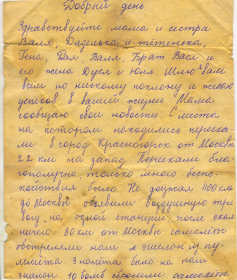 Добрый день
Здравствуйте мама и сестра
Валя, Дяденька и тетенька,
Гена, Рая, Валя, Брат Вася и
его жена Дуся и Юля Шлю вам
всем по нискому поклону и желаю
успехов в вашей жизни Мама
сообщаю свои новости с места
на котором находились переехали
в город Красногорск от Москвы
22 км на запад. Переехали благополучно,
только много беспокойствия
было. Не доезжая 400 км
до Москвы объявили воздушную тревогу
на одной станции, после ехали
начел 80 км от Москвы самолеты
обстреляли наш эшелон из пулемета
3 налета было на наш
эшелон 10 бомб сбросили самолеты